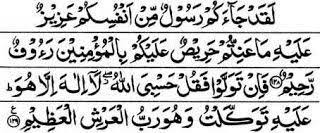 لَقَدْ جَآءَكُمْ رَسُوْلٌ مِّنْ اَنْفُسِكُمْ عَزِيْزٌ
عَلَيْهِ مَا عَنِتُّمْ حَرِيْصٌ عَلَيْكُمْ بِالْمُؤْمِنِيْنَ رَءُوْفٌ
رَّحِيْمٌ ﴿۱۲۸﴾ فَاِنْ تَوَلَّوْا فَقُلْ حَسْبِيَ اللّٰهُ لَآ اِلٰهَ اِلَّا هُوَ ؕ
عَلَيْهِ تَوَكَّلْتُ وَهُوَ رَبُّ الْعَرْشِ الْعَظِيْمِ ﴿۱۲۹﴾